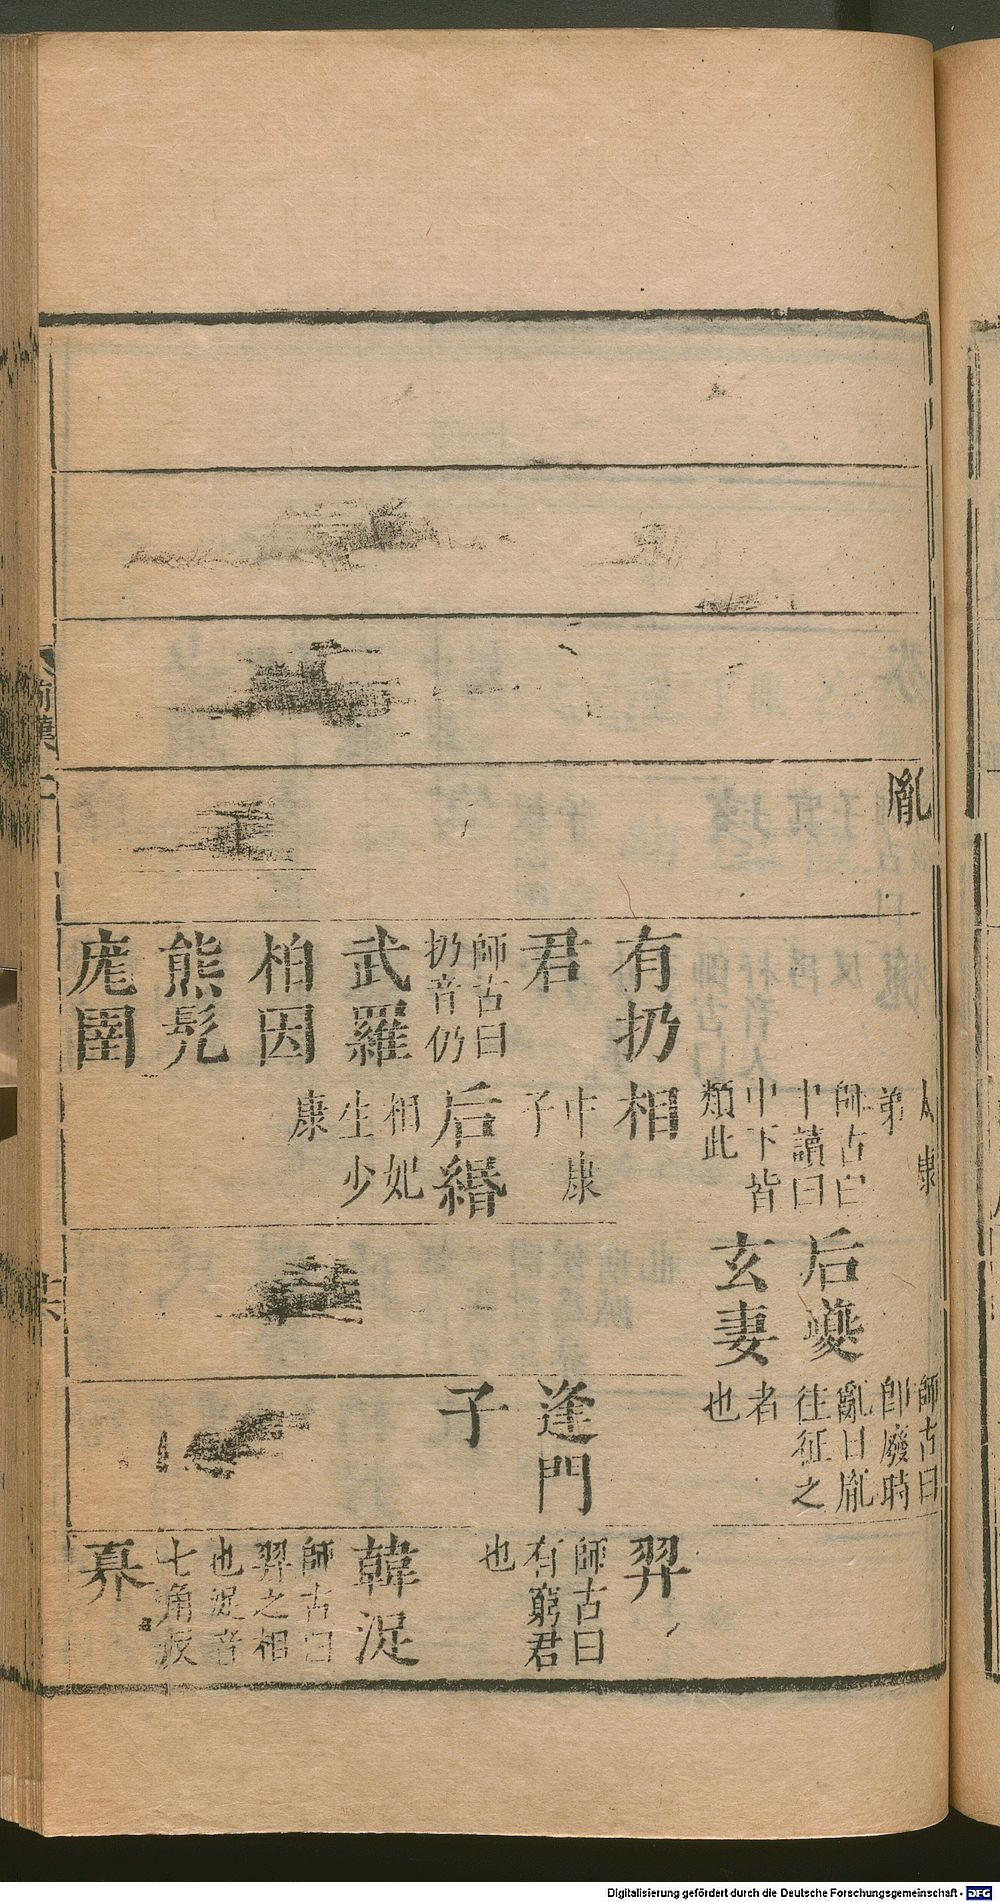 胤
有扔
君
師古曰
扔音仍
武羅
柏因
熊髡
庬圉
太康
弟
師古曰
中讀曰
中下皆
類此
相
中康
子
后緡
相妃
生少
康
后夔
玄妻
師古曰
即廢時
亂日胤
往征之
者
也
逢門
子
羿
師古曰
有窮君
也
韓浞
師古曰
羿之相
也浞音
七角反
奡
前漢
Digitalisierung gefördert durch die Deutsche Forschungsgemeinschaft - DFG